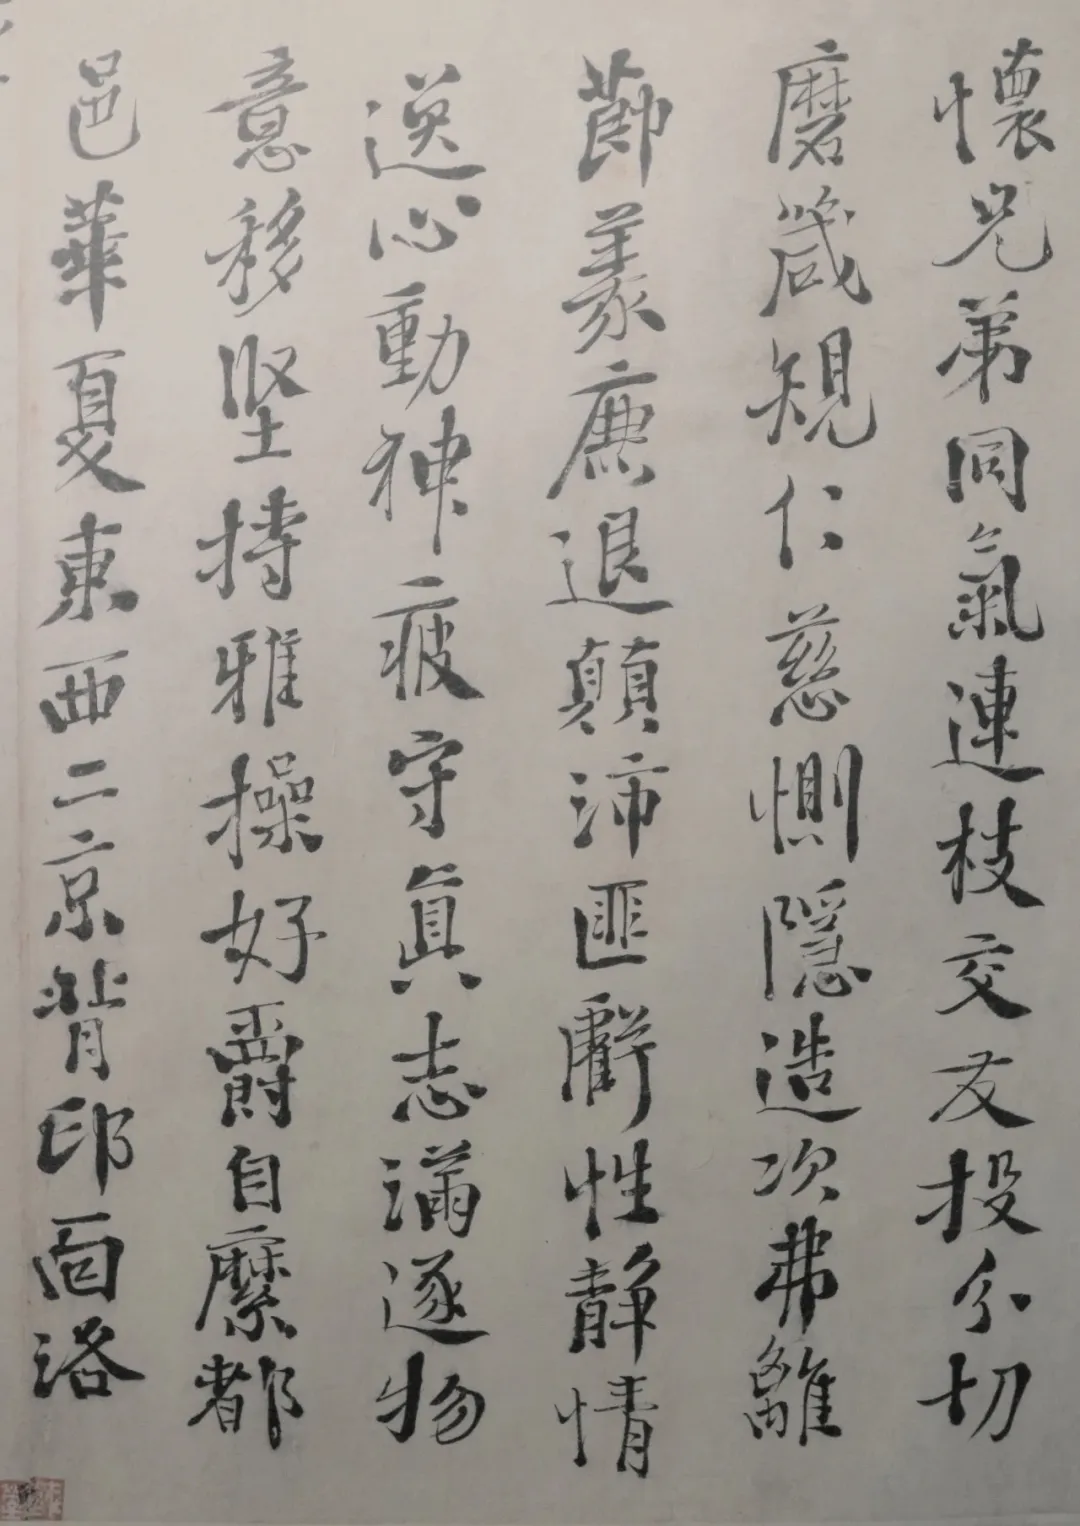 懷兄弟同氣連枝交友投分切
磨箴規仁慈惻隱造次弗離
節義廉退顛沛匪虧性靜情
逸心動神疲守眞志滿逐物
意移堅持雅操好爵自縻都
邑華夏東西二京背邙面洛